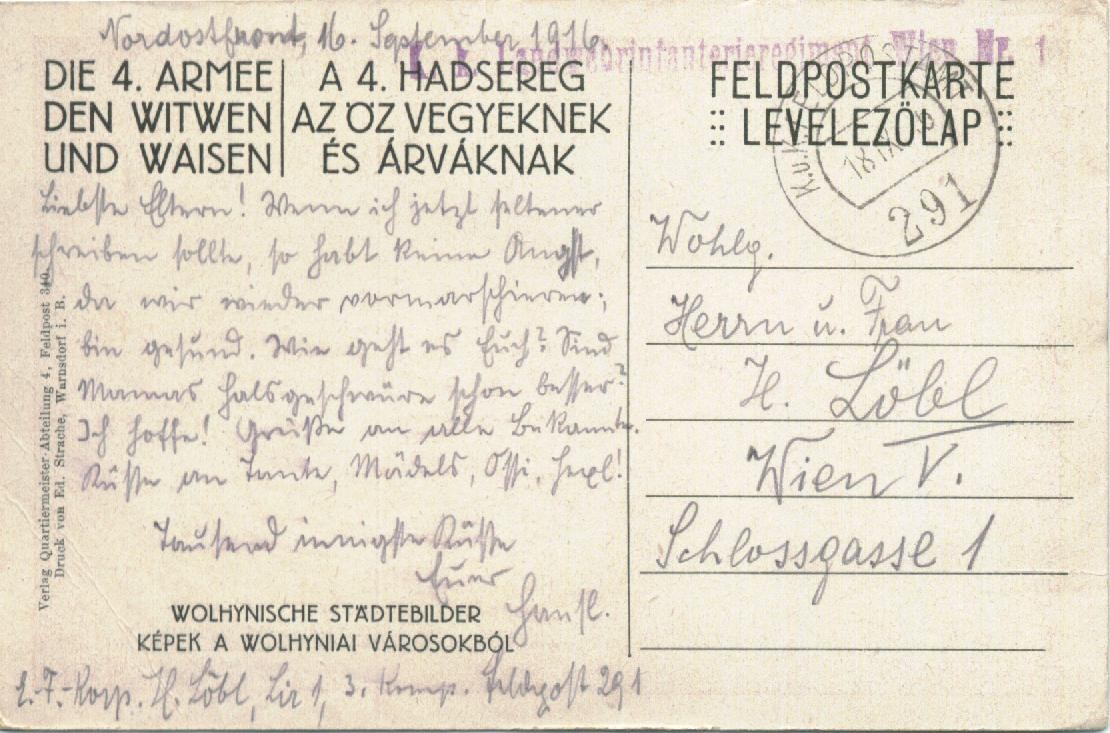 Nordostfront, 16. September 1916.
K. k. Landwehrinfanterieregiment Wien Nr. 1
DIE 4. ARMEE
DEN WITWEN
UND WAISEN
A 4. HADSEREG
AZ ÖZVEGYEKNEK
ÉS ÁRVÁKNAK
FELDPOSTKARTE
LEVELEZŐLAP
K.u.K. FELDPOSTAMT
18 IX 16
291
Liebste Eltern! Wenn ich jetzt seltener
schreiben sollte, so habt keine Angst,
da wir wieder vormarschieren;
bin gesund. Wie geht es Euch? Sind
Mamas Halsgeschwüre schon besser?
Ich hoffe! Grüße an alle Bekannte.
Küsse an Tante, Mädels, Ossi, Hexl!
Tausend innigste Küsse
Euer
Hansl.
WOLHYNISCHE STÄDTEBILDER
KÉPEK A WOLHYNIAI VÁROSOKBÓL
E.-F.-Korp. H. Löbl, Lir 1, 3. Komp. Feldpost 291
Verlag Quartiermeister-Abteilung 4, Feldpost 340.
Druck von Ed. Strache, Warnsdorf i. B.
Wohlg.
Herrn u. Frau
H. Löbl
Wien V.
Schlossgasse 1